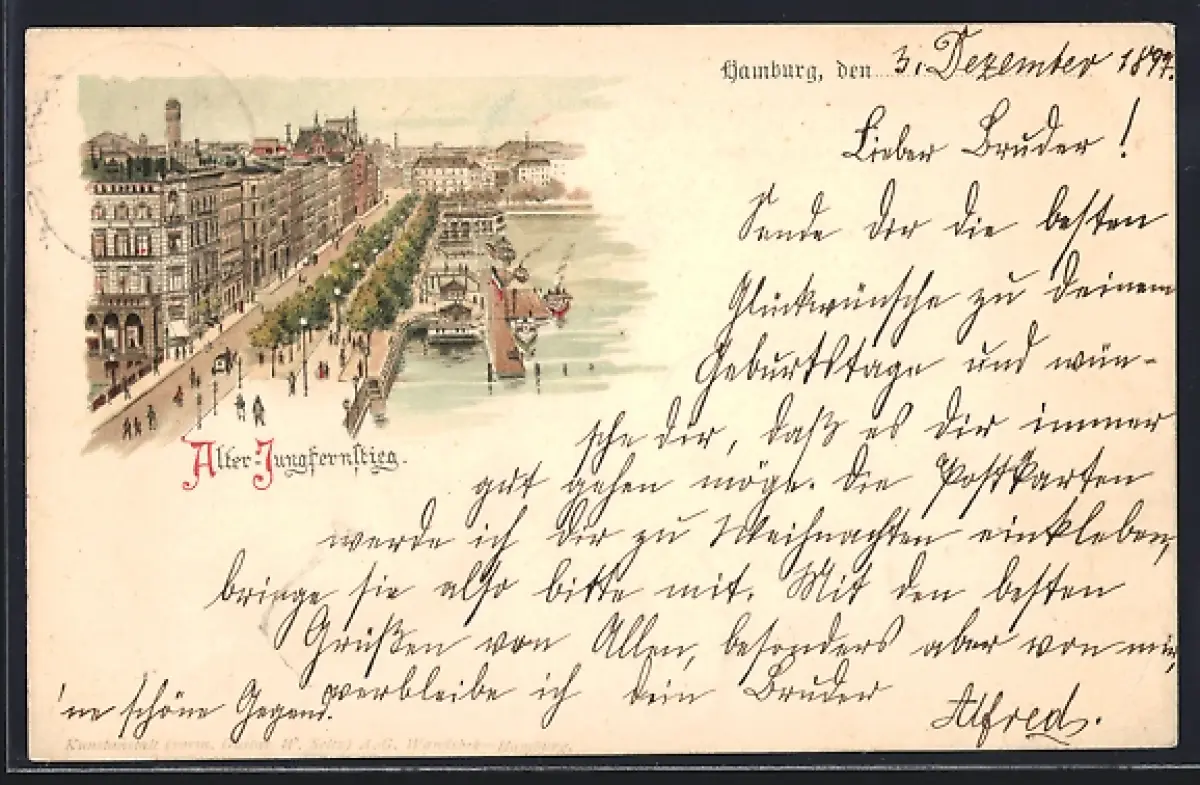 Hamburg, den 3. Dezember 1897.
Lieber Bruder!
Sende Dir die besten
Glückwünsche zu Deinem
Geburtstage und wün-
sche Dir, daß es Dir immer
gut gehen möge. Die Postkarten
werde ich Dir zu Weihnachten einkleben,
bringe sie also bitte mit. Mit den besten
Grüßen von Allen, besonders aber von mir,
verbleibe ich Dein Bruder
Alfred.
'ne schöne Gegend.
Alter-Jungfernstieg.
Kunstanstalt (vorm. Gustav W. Seitz) A.-G. Wandsbek-Hamburg.